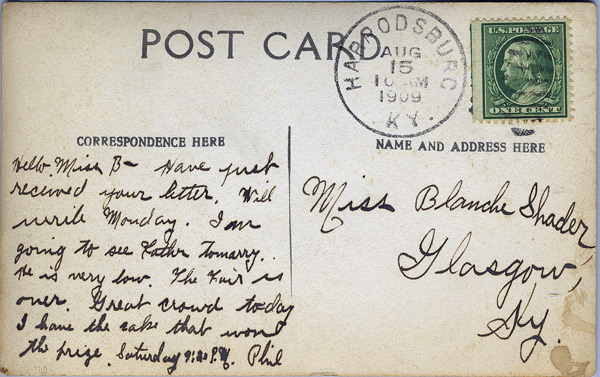 POST CARD
HARRODSBURG
AUG
15
10 AM
1909
KY.
U.S. POSTAGE
ONE CENT
CORRESPONDENCE HERE
NAME AND ADDRESS HERE
Hello Miss B— Have just
received your letter. Will
write Monday. I am
going to see Fathr tomarry.
He is very low. The Fair is
over. Great crowd to-day
I have the cake that won
th prize. Saturday P.M. Phil
Miss Blanche Shader,
Glasgow,
Ky.